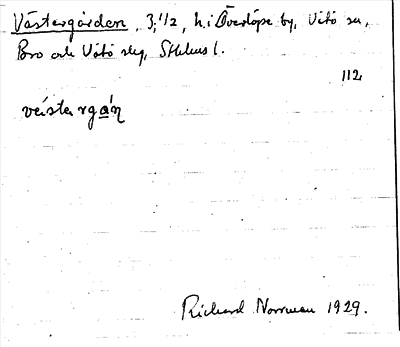 Västergården, 3, 1/2, h. i Överlöpe by, Vätö sn,
Bro och Vätö slg, Sthlms l.
112
vèstergán
Richard Norrman 1929.